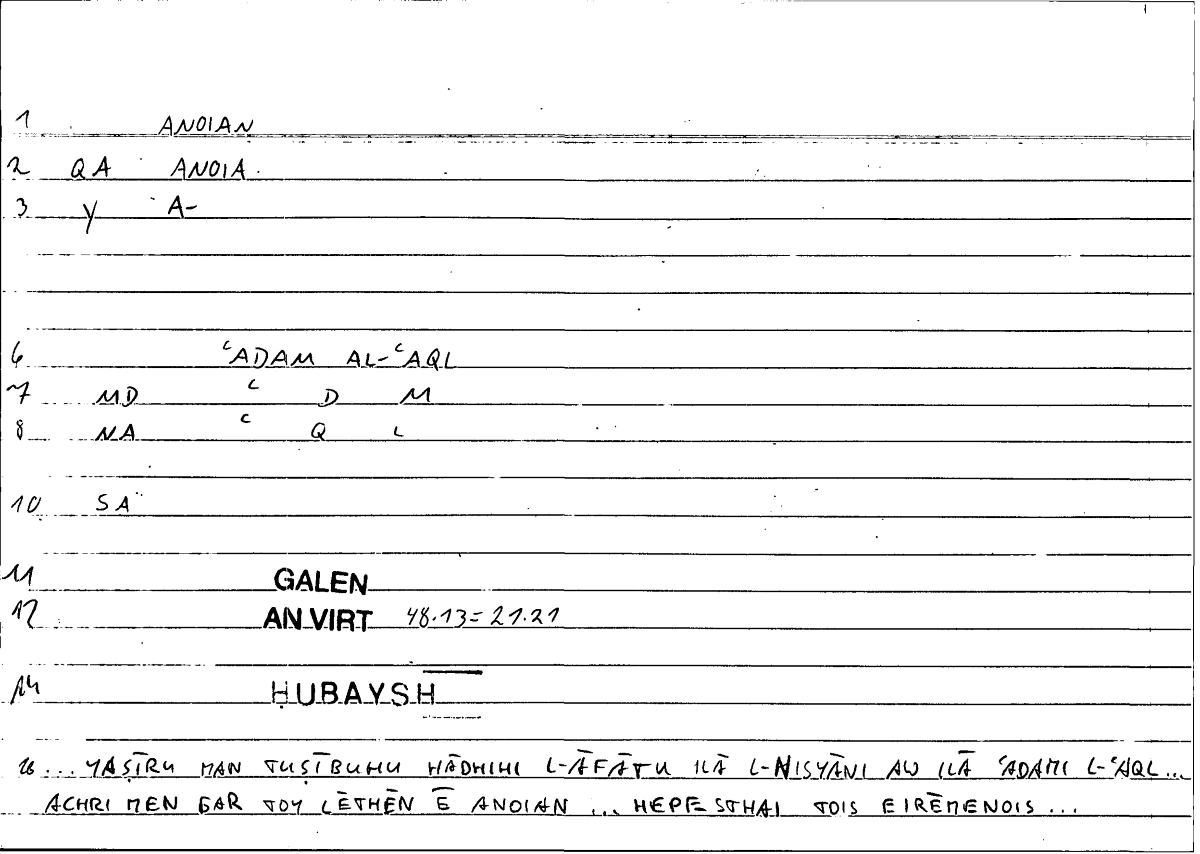 1 ANOIAN
2 QA ANOIA
3 Y A-
6 ʿADAM AL-ʿAQL
7 MD ʿ D M
8 NA ʿ Q L
10 SA
11 GALEN
12 AN VIRT 48.13=21.21
14 ḤUBAYSH
26 ... YAṢĪRU MAN TUṢĪBUHU HĀDHIHI L-ĀFĀTU ILĀ L-NISYĀNI AW ILĀ ʿADAMI L-ʿAQL...
ACHRI MEN GAR TOY LĒTHĒN Ē ANOIAN ... HEPESTHAI TOIS EIRĒMENOIS ...